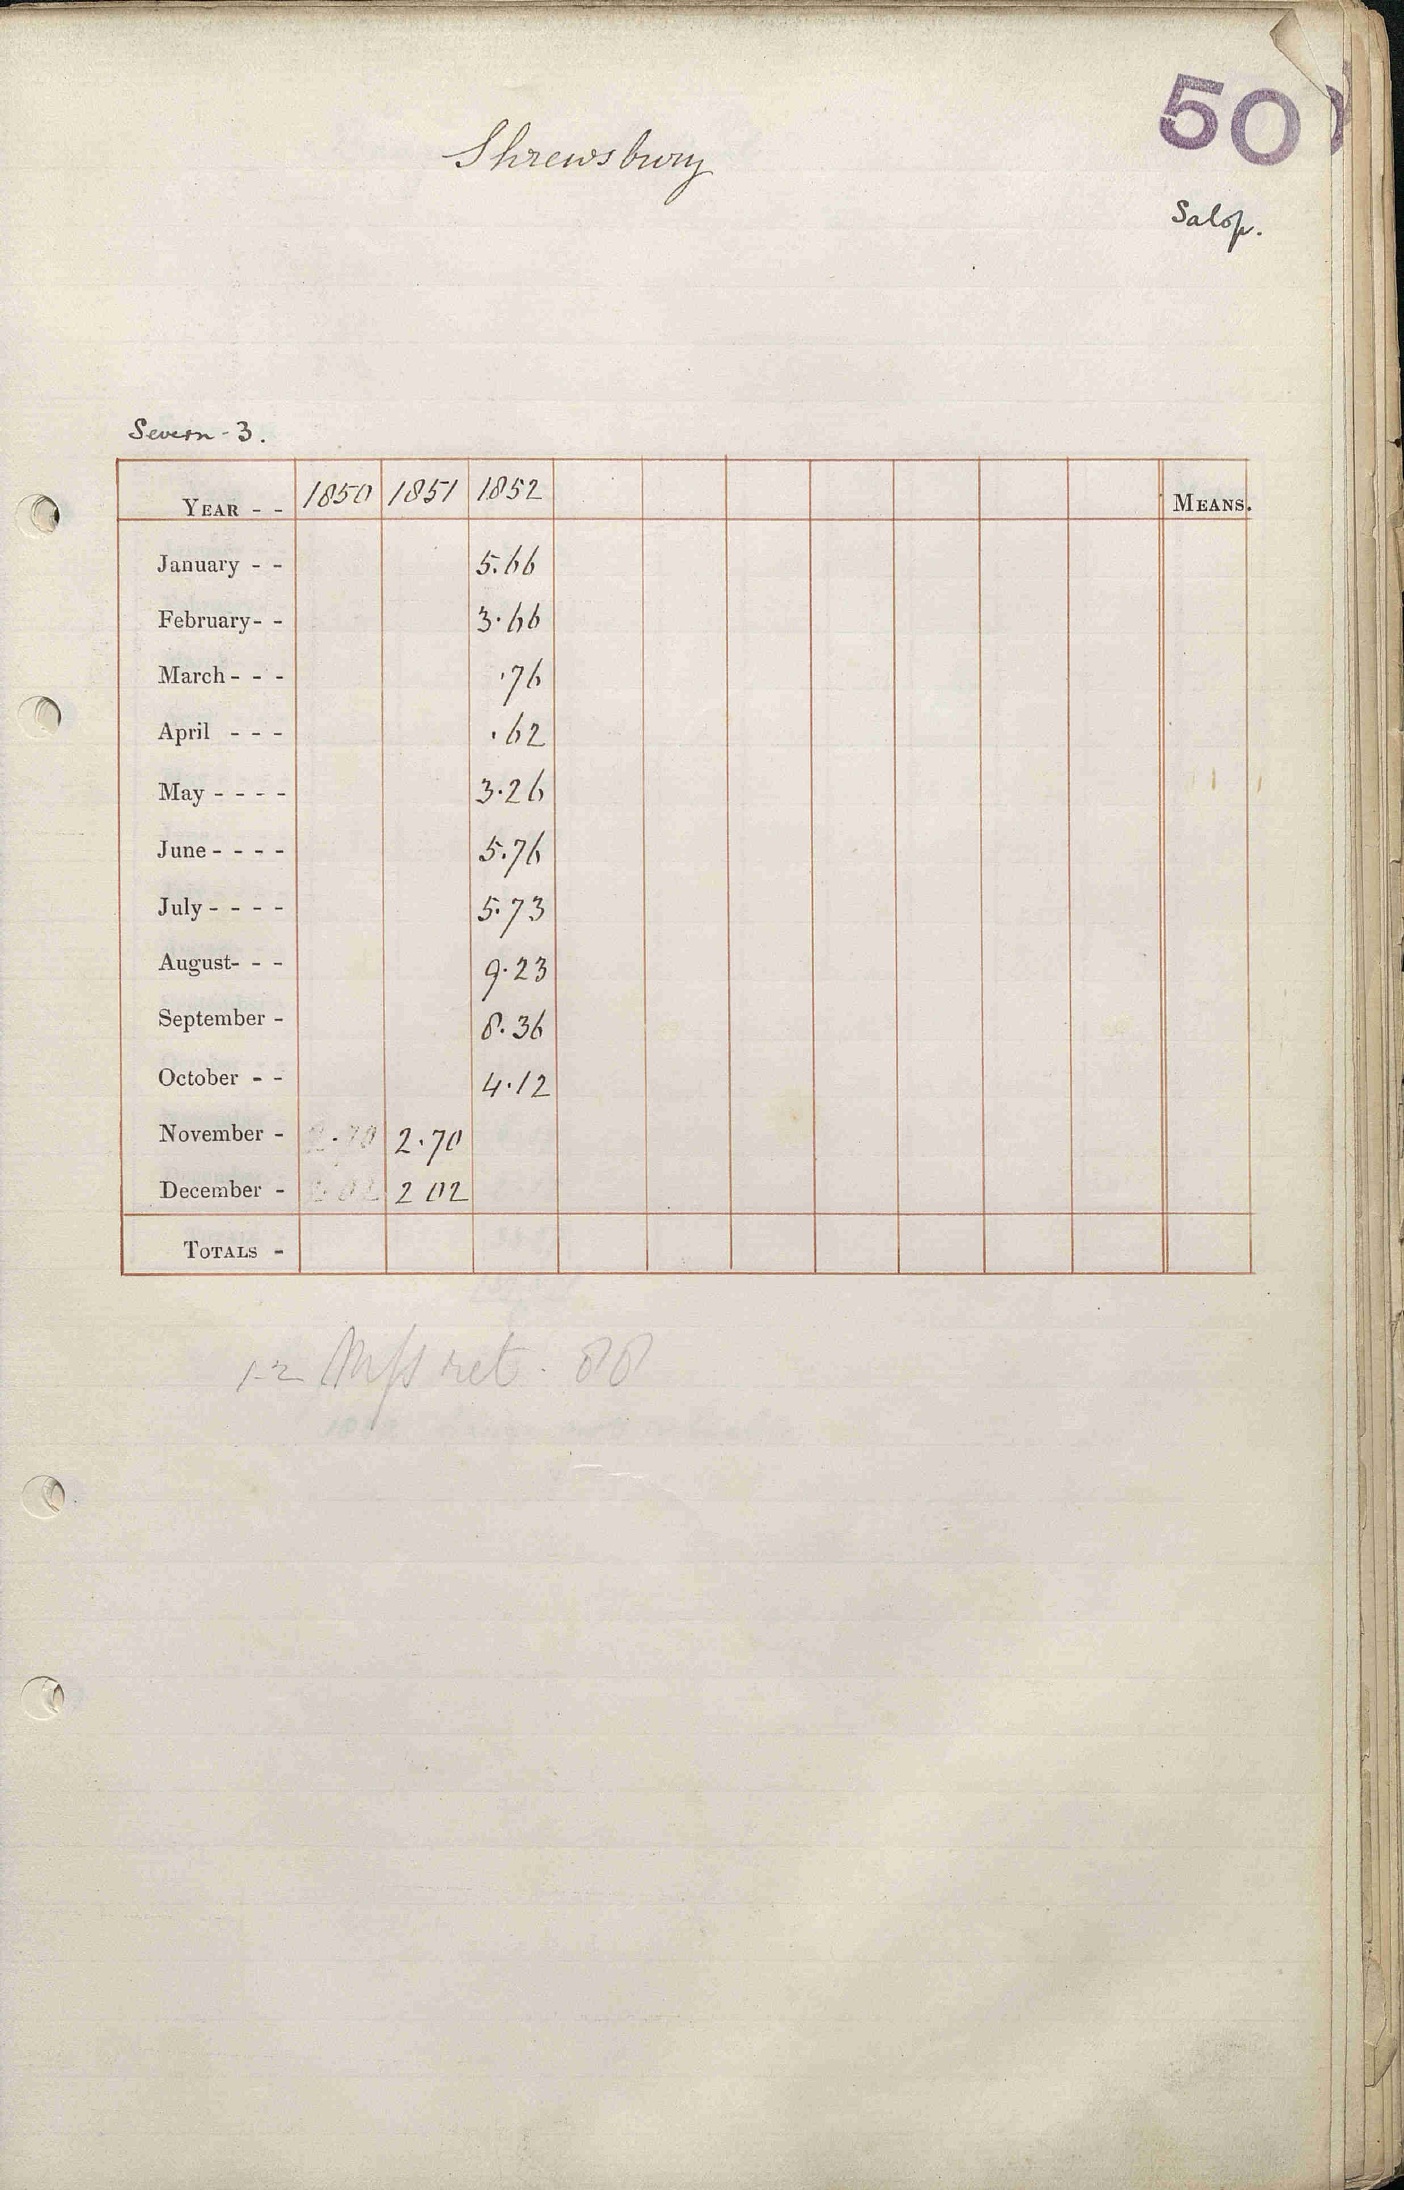 50
Shrewsbury
Salop.
Severn - 3.
YEAR - - 1850 1851 1852 MEANS.
January - - 5.66
February - - 3.66
March - - - .76
April - - - .62
May - - - - 3.26
June - - - - 5.76
July - - - - 5.73
August - - - 9.23
September - 8.36
October - - 4.12
November - 2.70 2.70
December - 2 02 2 02
TOTALS -
1-2 Mss ret. 88